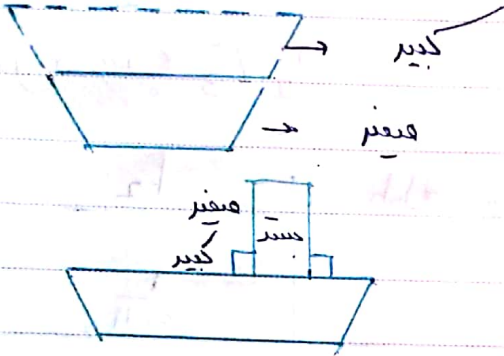 كبير
صغير
صغير
كبير